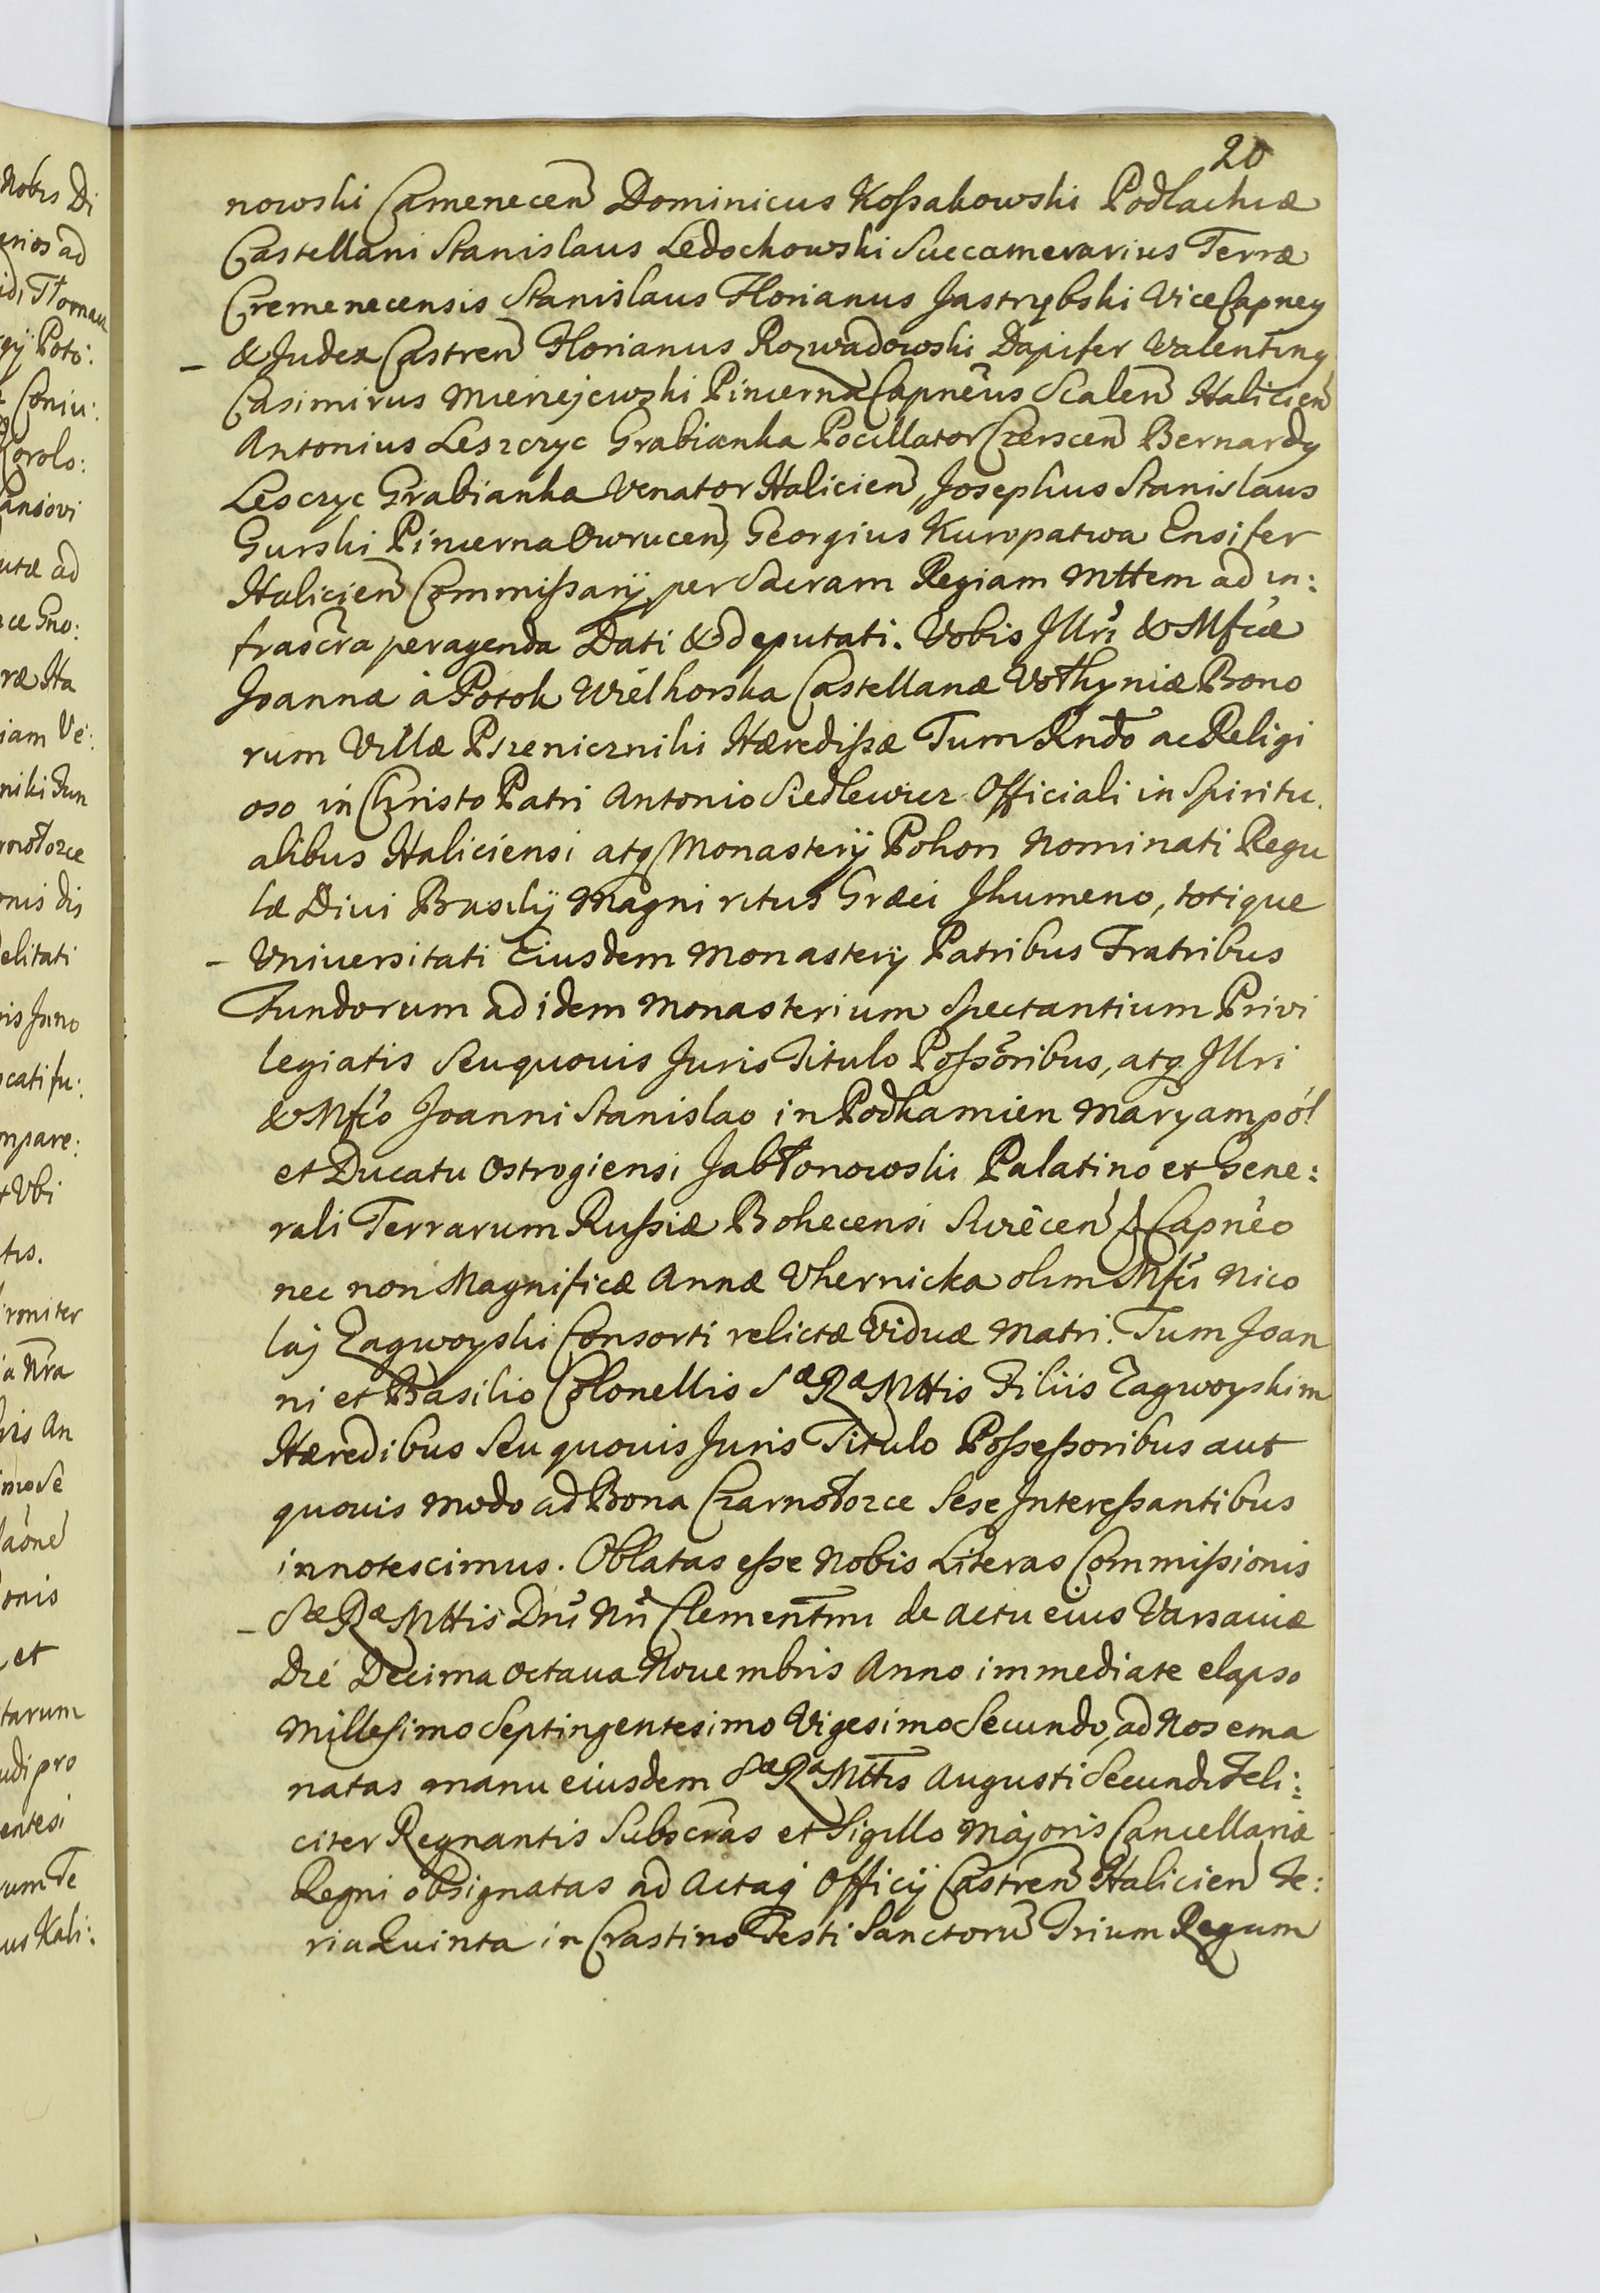 20
nowski Camenecen Dominicus Kossakowski Podlachiæ
Castellani Stanislaus Ledochowski Succamerarius Terræ
Cremenecensis Stanislaus Florianus Jastrzybski ViceCapney
& Judex Castren Florianus Rozwadowski Dapifer Valentiny
Casimirus Mierzejewski Pincerna Capnéus Scalen Halicien
Antonius Leszczyc Grabianka Pocillator Czerscen Bernardy
Lesczyc Grabianka Venator Halicien, Josephus Stanislaus
Gurski Pincerna Owrucen, Georgius Kuropatwa Ensifer
Halicien Commissarij per Sacram Regiam Mttem ad in:
frascra peragenda Dati & deputati. Vobis Illri & Mfcæ
Joannæ à Potok Wielhorska Castellanæ Vołhyniæ Bono
rum Villæ Pszenicznihi Hæredissæ Tum Rndo ac Religi
oso in Christo Patri Antonio Siedlewicz Officiali in Spiritu
alibus Haliciensi atq Monasterij Pohon Nominati Regu
læ Divi Basilij Magni ritus Græci Jhumeno, totique
– Universitati Eiusdem Monasterij Patribus Fratribus
Fundorum ad idem Monasterium Spectantium Privi
legiatis Seu quovis Juris Titulo Possoribus, atq Illri
& Mfco Joanni Stanislao in Podkamien Maryampól
et Ducatu Ostrogiensi Jabłonowski Palatino et Gene:
rali Terrarum Russiæ Bohecensi Swiecen & Capnéo
nec non Magnificæ Annæ Uhernicka olim Mfci Nico
laj Zagwoyski Consorti relictæ Viduæ Matri. Tum Joan
ni et Basilio Colonellis Sæ Ræ Mttis Filiis Zagwoyskim
Hæredibus Seu quovis Juris Titulo Possessoribus aut
quovis modo ad Bona Czarnołozce Sese Interessantibus
innotescimus. Oblatas esse Nobis Literas Commissionis
– Sæ Ræ Mttis Dni Nri Clementmi de actu eius Varsaviæ
Die Decima Octava Novembris Anno immediate elapso
Millesimo Septingentesimo Vigesimo Secundo, ad Nos ema
natas manu eiusdem Sæ Ræ Mttis Augusti Secundi Feli:
citer Regnantis Subscras et Sigillo Majoris Cancellariæ
Regni obsignatas ad Actaq Officij Castren Halicien Fe:
ria Quinta in Crastino Festi Sanctoru Trium Regum